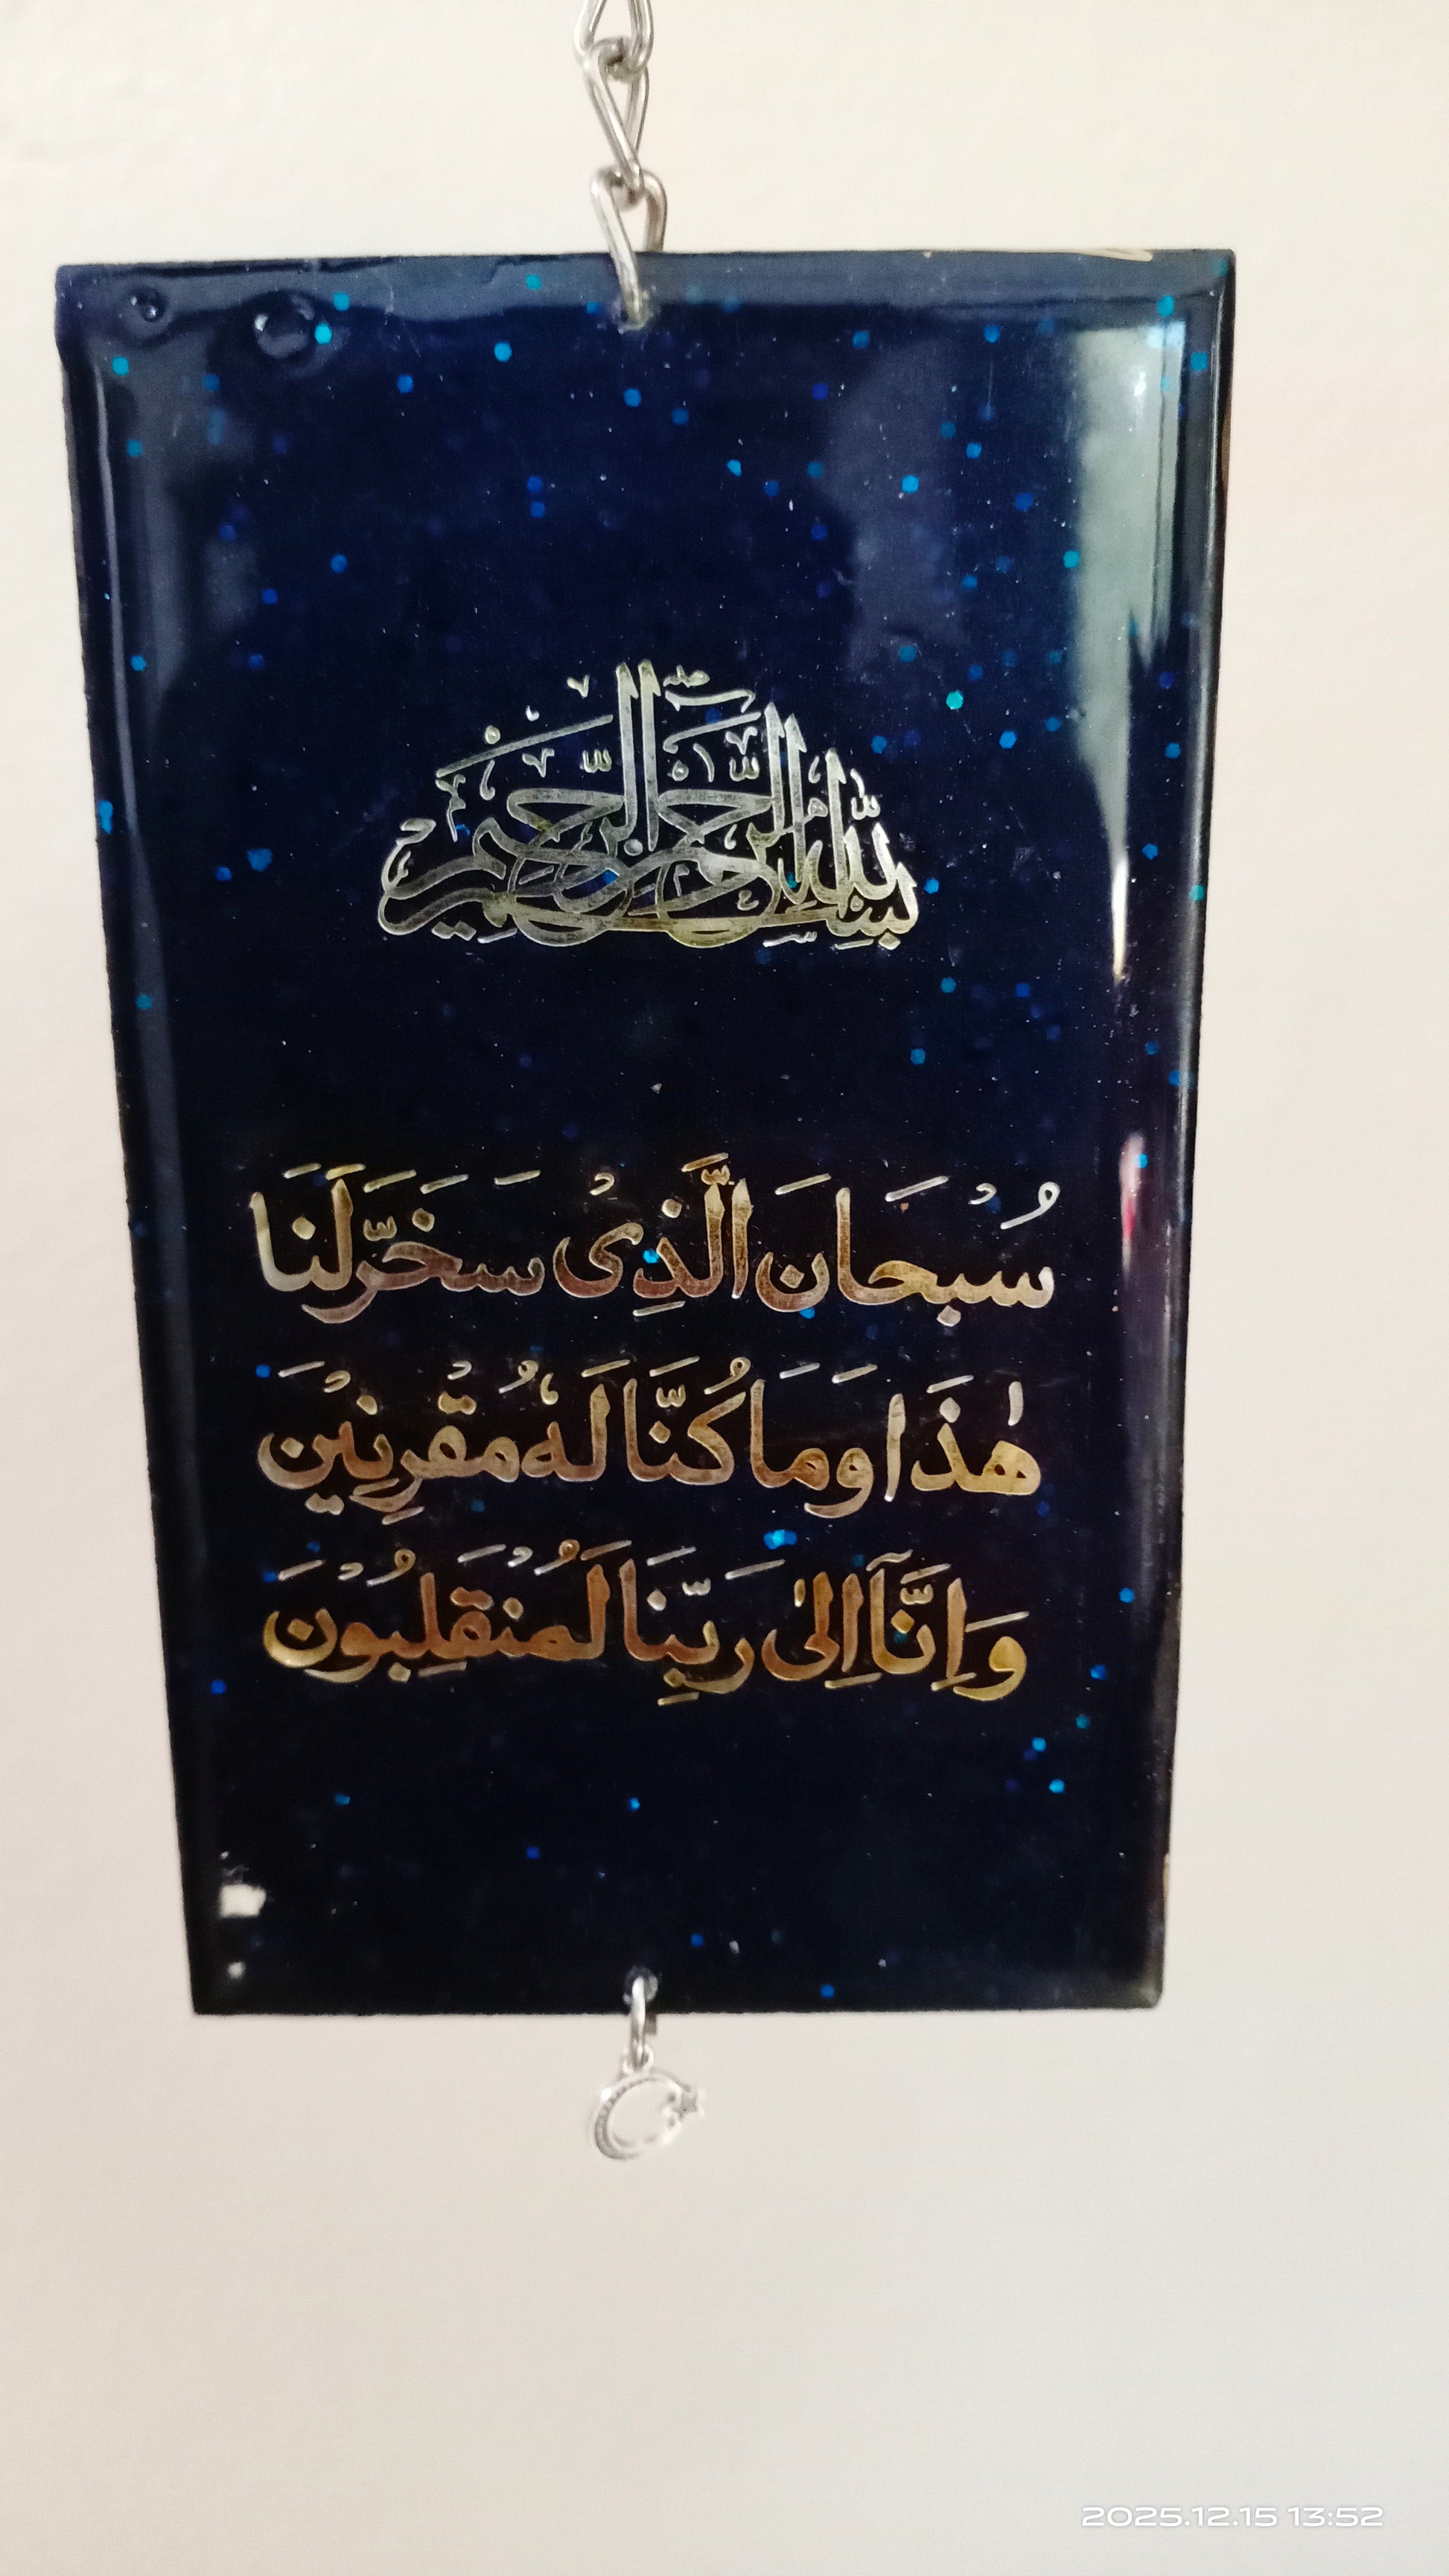 بِسْمِ اللّٰهِ الرَّحْمٰنِ الرَّحِيْمِ
سُبْحَانَ الَّذِىْ سَخَّرَلَنَا
هٰذَا وَمَا كُنَّا لَهٗ مُقْرِنِيْنَ
وَاِنَّآ اِلىٰ رَبِّنَا لَمُنْقَلِبُوْنَ
2025.12.15 13:52